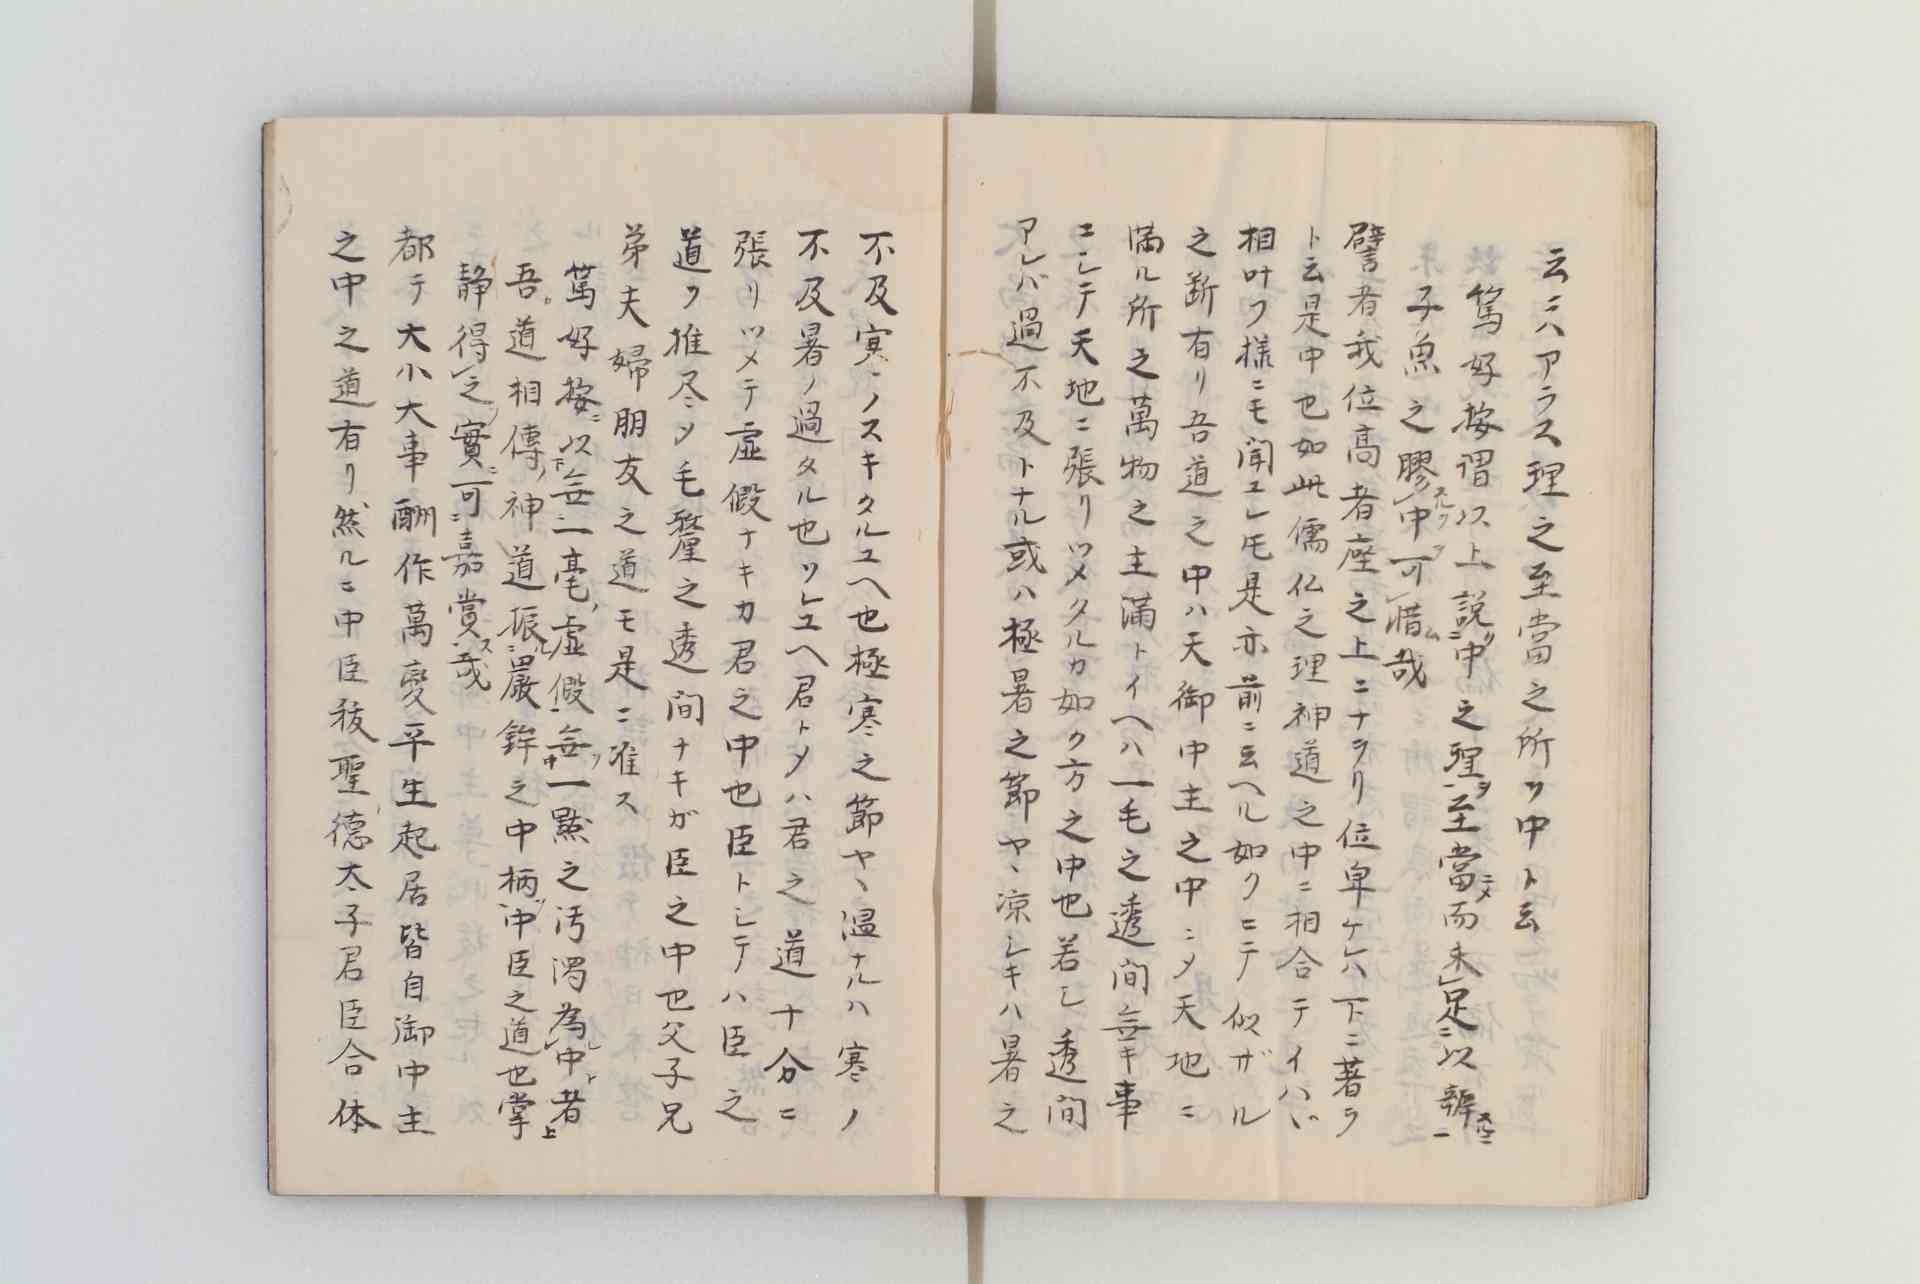 云ニハアラス理之至當之所ヲ中ト云
篤好按謂以上説中之聖至當而未足以辨
子魚之膠中可惜哉
譬者我位高者座之上ニナヲリ位卑ケレハ下ニ著ヲ
ト云是中也如此儒仏之理神道之中ニ相合テイハヾ
相叶フ様ニモ聞エレ𪜈是亦前ニ云ヘル如クニテ似ザル
之断有リ吾道之中ハ天御中主之中ニメ天地ニ
満ル所之萬物之主満トイヘハ一毛之透間無キ事
ニシテ天地ニ張リツメタルカ如ク方之中也若シ透間
アレバ過不及トナル或ハ極暑之節ヤヽ凉シキハ暑之
不及寒ノスキタルユヘ也極寒之節ヤヽ温ナルハ寒ノ
不及暑ノ過タル也ソレユヘ君トメハ君之道十分ニ
張リツメテ虚假ナキカ君之中也臣トシテハ臣之
道ヲ推尽シメ毛釐之透間ナキガ臣之中也父子兄
弟夫婦朋友之道モ是ニ准ス
篤好按以無一毫虚假無一點之汚濁為中者
吾道相傳神道振嚴鉾之中柄中臣之道也掌
静得之實可嘉賞哉
都テ大小大事酬作萬變平生起居皆自御中主
之中之道有リ然ルニ中臣祓聖徳太子君臣合体